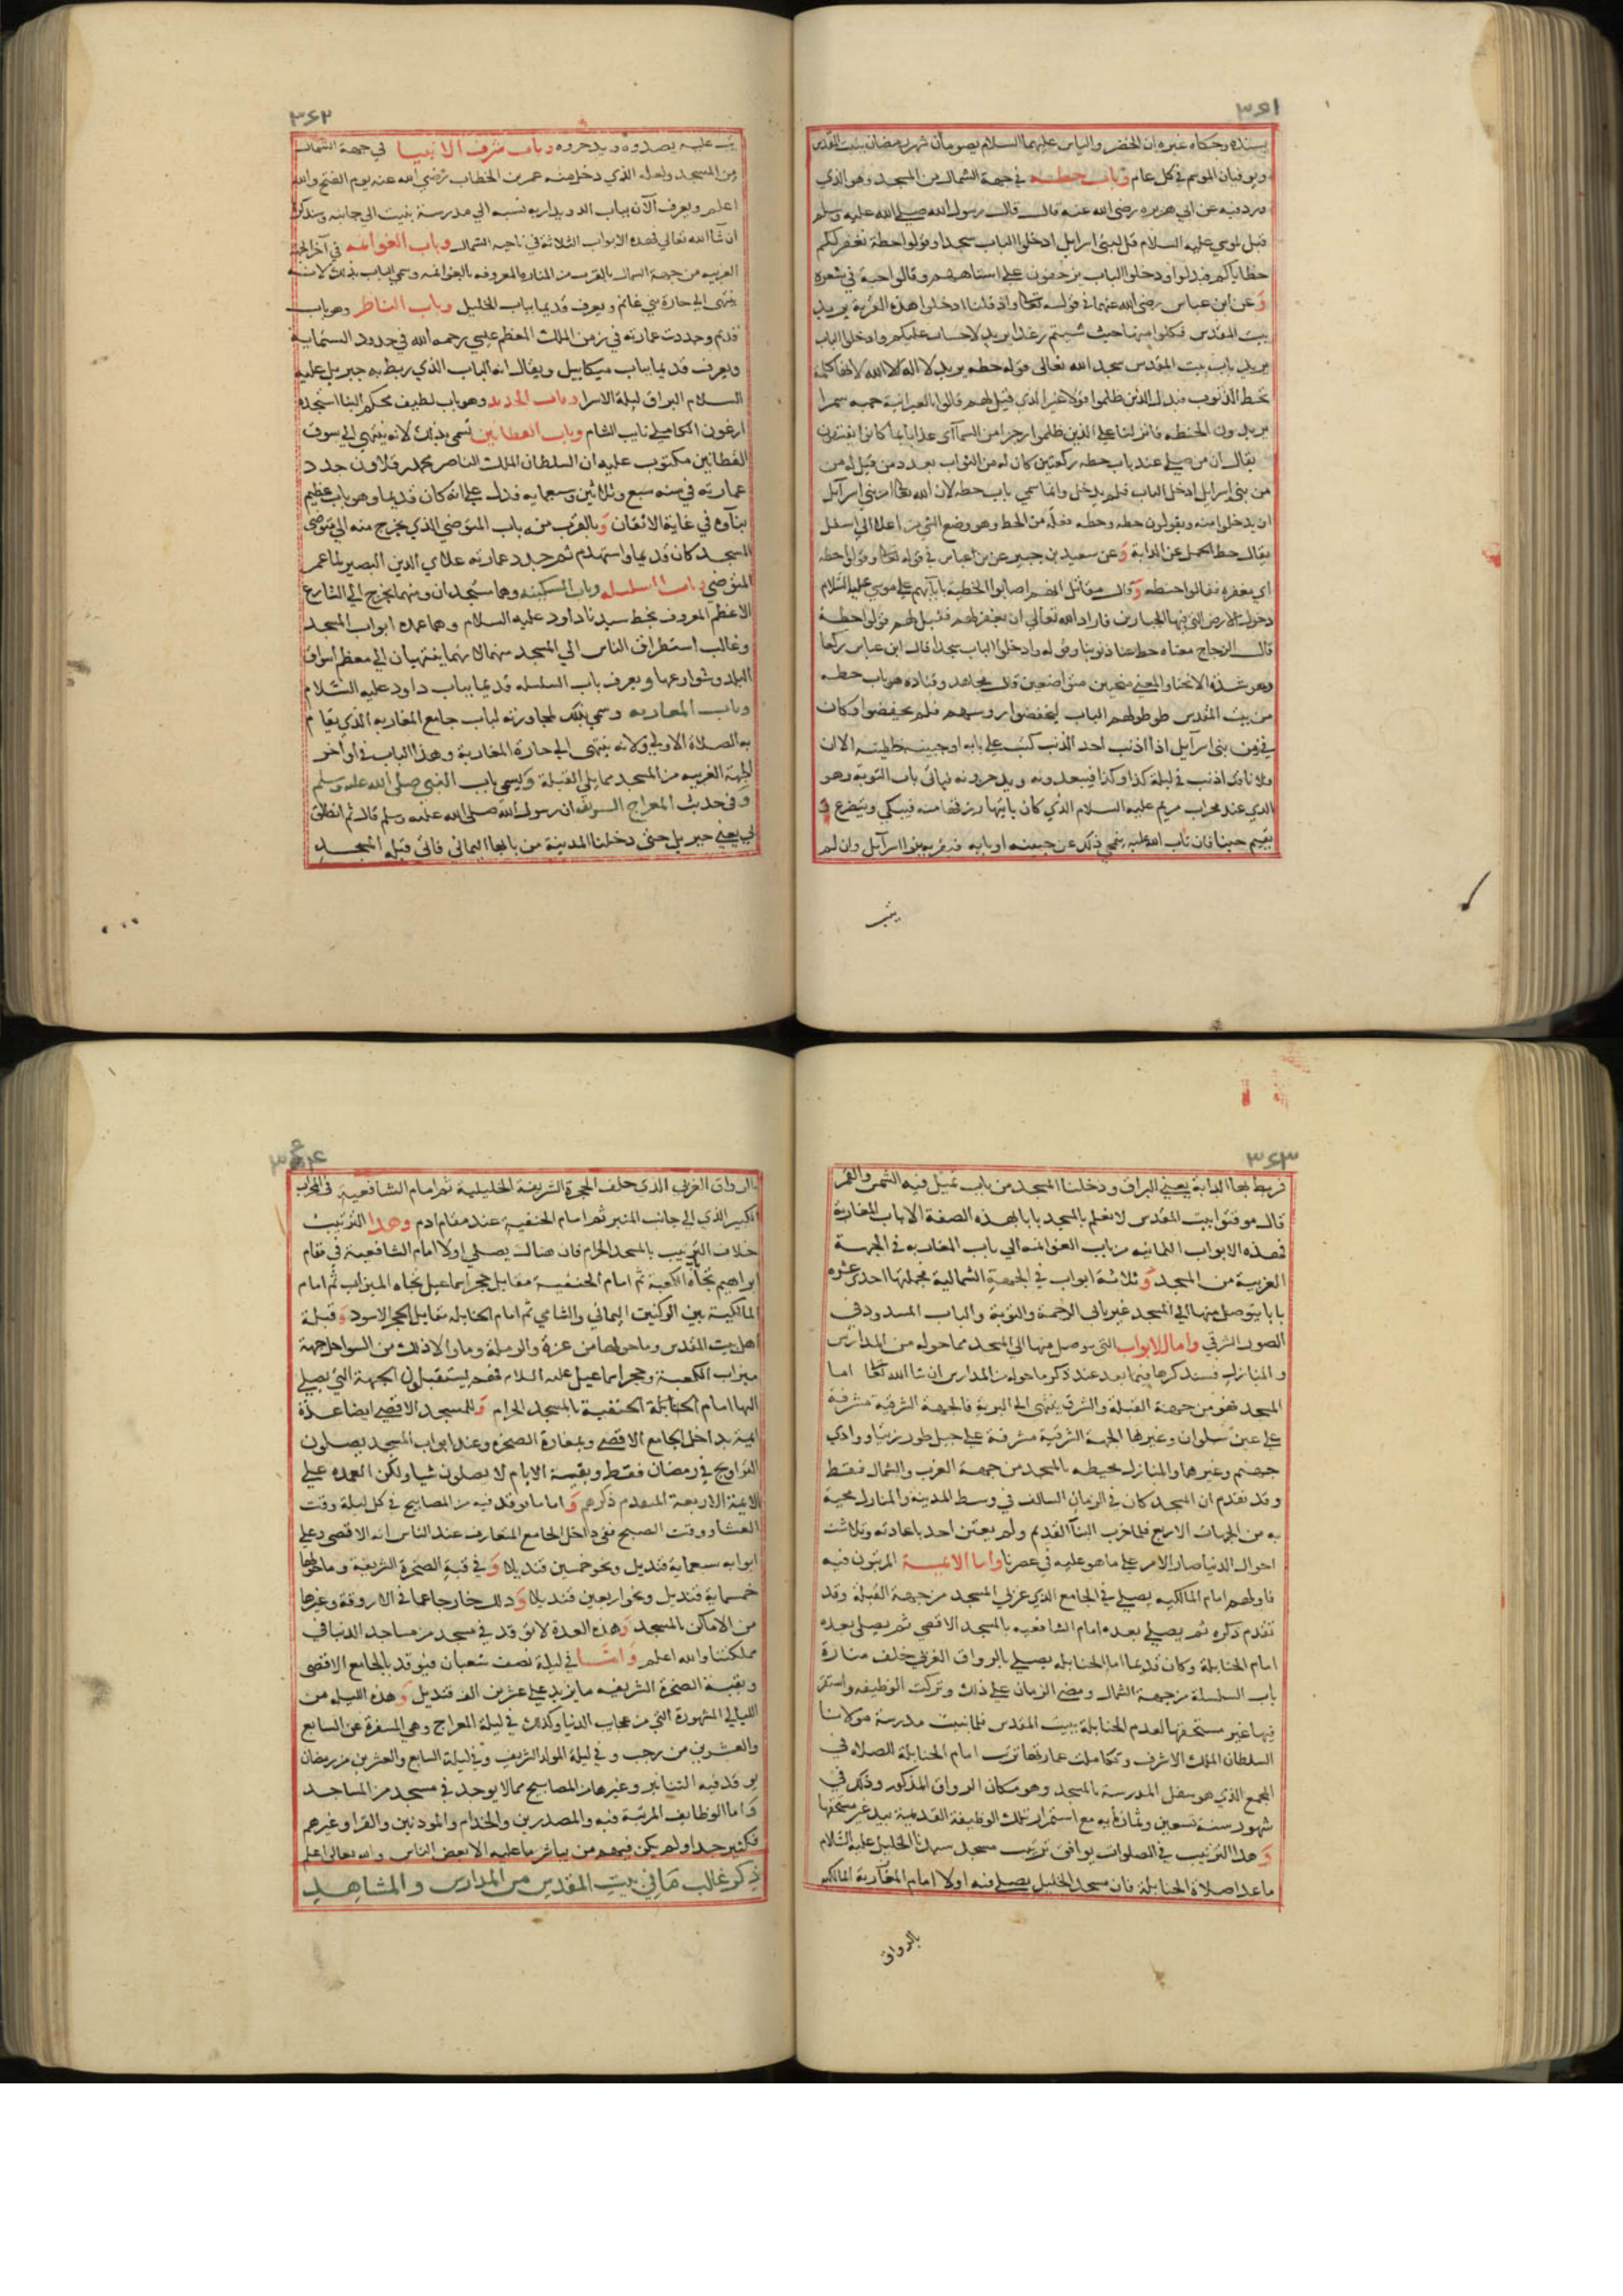 ٣٦١
بسنده وحكاه غيره ان الخضر والياس عليهما السلام يصومان شهر رمضان ببيت المقدس
ويوفيان الموسم في كل عام وباب حطه في جهة الشمال من المسجد وهو الذي
ورد فيه عن ابي هريره رضي الله عنه قال قال رسول الله صلي الله عليه وسلم
قيل لموسي عليه السلام قل لبني اسرايل ادخلوا الباب سجدا وقولوا حطة نغفر لكم
خطاياكم فبدلوا ودخلوا الباب يزحفون علي استاههم وقالوا حبة في شعرة
وعن ابن عباس رضي الله عنهما في قوله تعالى واذ قلنا ادخلوا هذه القرية يريد
بيت المقدس فكلوا منها حيث شيتم رغدا يريد لا حساب عليكم وادخلوا الباب
يريد باب بيت المقدس سجدا لله تعالى قوله حطه يريد لا اله الا الله لانها كلمة
تحط الذنوب فبدل الذين ظلموا قولا غير الذي قيل لهم قالوا بالعبرانية حبه سمرا
يريدون الحنطه فانزلنا علي الذين ظلموا رجزا من السمآ اي عذابا بما كانوا يفسقون
يقال ان من صلي عند باب حطه ركعتين كان له من الثواب بعدد من قيل له من
من بني اسرايل ادخل الباب فلم يدخل وانما سمي باب حطه لان الله تعالى امر بني اسرآيل
ان يدخلوا منه ويقولون حطه وحطه فعله من الحط وهو وضع الشي من اعلا الي اسفل
يقال حط الحمل عن الدابة وعن سعيد بن جبير عن ابن عباس في قوله تعالى وقولوا حطه
اي مغفره فقالوا حنطه وقال مقاتل انهم اصابوا الخطية بابآيهم علي موسي عليه السلام
دخول الارض التي فيها الجبارين فاراد الله تعالى ان يغفر لهم فقيل لهم قولوا حطة
قال الزجاج معناه حط عنا ذنوبنا وقوله وادخلوا الباب سجدا قال ابن عباس ركعا
وهو شدة الانحنا والمعني منحنين متواضعين قال مجاهد وقتاده هو باب حطه
من بيت المقدس طوطي لهم الباب ليخفضوا روسهم فلم يخفضوا وكان
في زمن بني اسرآيل اذا اذنب احد الذنب كتب علي بابه او جبينه خطيته الا ان
فلانا قد اذنب في ليلة كذا وكذا فيبعدونه ويدحرونه فياتي باب التوبة وهو
الذي عند محراب مريم عليه السلام الذي كان ياتيها رزقها منه فيبكي ويتضرع و
يقيم حينا فان تاب الله عليه محي ذلك عن جبينه او بابه فيقربه بنوا اسرآيل وان لم
يتب
٣٦٢
يتب عليه يبعدوه ويدحروه وباب شرف الانبيا في جهة الشمال
من المسجد ولعله الذي دخل منه عمر بن الخطاب رضي الله عنه يوم الفتح والله
اعلم ويعرف الآن بباب الدويداريه نسبه الي مدرسة بنيت الي جانبه وستذكر
ان شآ الله تعالي فهذه الابواب الثلاثة في ناحيه الشمال وباب الغوانمه في آخر الجهة
الغربيه من جهة الشمال بالقرب من المناره المعروفه بالغوانمه وسمي الباب بذلك لانه
ينتهي الي حارة بني غانم ويعرف قديما بباب الخليل وباب الناظر وهو باب
قديم وجددت عمارته في زمن الملك المعظم عيسي رحمه الله في حدود الستماية
ويعرف قديما بباب ميكاييل ويقال انه الباب الذي ربط به جبريل عليه
السلام البراق ليلة الاسرا وباب الحديد وهو باب لطيف محكم البنا استجده
ارغون الكاملي نايب الشام وباب القطانين سمي بذلك لانه ينتهي الي سوق
القطانين مكتوب عليه ان السلطان الملك الناصر محمد بن قلاون جدد
عمارته في سنه سبع وثلاثين وسبعمايه فدل علي انه كان قديما وهو باب عظيم
بنآوه في غاية الاتقان وبالقرب منه باب المتوضي الذي يخرج منه الي متوضي
المسجد كان قديما واستهدم ثم جدد عمارته علاي الدين البصير لما عمر
المتوضي وباب السلسله وباب السكينه وهما متحدان ومنهما يخرج الي الشارع
الاعظم المعروف بخط سيدنا داود عليه السلام وهما عمدة ابواب المسجد
وغالب استطراق الناس الي المسجد منهما لانهما ينتهيان الي معظم اسواق
البلد وشوارعها ويعرف باب السلسله قديما بباب داود عليه السلام
وباب المغاربه وسمي بذلك لمجاورته لباب جامع المغاربه الذي يقام
به الصلاة الاولي ولانه ينتهي الي حارة المغاربة وهذا الباب في اواخر
الجهة الغربيه من المسجد مما يلي القبلة ويسمي باب النبي صلي الله عليه وسلم
وفي حديث المعراج الشريف ان رسول الله صلي الله عليه وسلم قال ثم انطلق
بي يعني جبريل حتي دخلنا المدينة من بابها اليماني فاتي قبلة المسجد
٣٦٣
فربط بها الدابة يعني البراق ودخلنا المسجد من باب تميل فيه الشمس والقمر
قال موقتوا بيت المقدس لا نعلم بالمسجد بابا بهذه الصفة الا باب المغاربة
فهذه الابواب الثمانيه من باب الغوانمه الي باب المغاربه في الجهة
الغربية من المسجد وثلاثة ابواب في الجهة الشمالية فجملتها احدي عشره
بابا يتوصل منها الي المسجد غير بابي الرحمة والتوبة والباب المسدود في
الصور الشرقي واما الابواب التي يتوصل منها الي المسجد مما حوله من المدارس
والمنازل فسنذكرها فيما بعد عند ذكر ما حوله من المدارس ان شا الله تعالى اما
المسجد فهو من جهة القبلة والشرق ينتهي الي البرية فالجهة الشرقية مشرفة
علي عين سلوان وغيرها الجهة الشرقية مشرفة علي جبل طور زيتا ووادي
جهنم وغيرها والمنازل محيطه بالمسجد من جهة الغرب والشمال فقط
وقد تقدم ان المسجد كان في الزمان السالف في وسط المدينة والمنازل محيطة
به من الجهات الاربع فلما خرب البنآ القديم ولم يعتن احد باعادته وتلاشت
احوال الدنيا صار الامر علي ما هو عليه في عصرنا واما الايمة المرتبون فيه
فاولهم امام المالكيه يصلي في الجامع الذي غربي المسجد من جهة القبلة وقد
تقدم ذكره ثم يصلي بعده امام الشافعيه بالمسجد الاقصي ثم يصلي بعده
امام الحنابلة وكان قديما امام الحنابله يصلي بالرواق الغربي خلف منارة
باب السلسلة من جهة الشمال ومضي الزمان علي ذلك وتركت الوظيفه واستقر
فيها غير مستحقها لعدم الحنابلة ببيت المقدس فلما بنيت مدرسة مولانا
السلطان الملك الاشرف وتكاملت عمارتها ترتب امام الحنابلة للصلاه في
المجمع الذي هو سفل المدرسة بالمسجد وهو مكان الرواق المذكور وذلك في
شهور سنة تسعين وثمانمايه مع استمرار تلك الوظيفة القديمة بيد غير مستحقها
وهذا الترتيب في الصلوات يوافق ترتيب مسجد سيدنا الخليل عليه السلام
ما عدا صلاة الحنابلة فان مسجد الخليل يصلي فيه اولا امام المغاربة المالكيه
بالرواق
٣٦٤
بالرواق الغربي الذي خلف الحجرة الشريفة الخليلية ثم امام الشافعية في المحراب
الكبير الذي الي جانب المنبر ثم امام الحنفية عند مقام ادم وهذا الترتيب
خلاف الترتيب بالمسجد الحرام فان هناك يصلي اولا امام الشافعية في مقام
ابراهيم تجاه الكعبة ثم امام الحنفية مقابل حجر اسماعيل تجاه الميزاب ثم امام
المالكية بين الركنين اليماني والشامي ثم امام الحنابله مقابل الحجر الاسود وقبلة
اهل بيت المقدس وما حولها من غزة والرملة وما والا ذلك من السواحل جهة
ميزاب الكعبة وحجر اسماعيل عليه السلام فهم يستقبلون الجهة التي يصلي
اليها امام الحنفية بالمسجد الحرام وللمسجد الاقصي ايضا عدة
ايمة بداخل الجامع الاقصي وبمغارة الصخرة وعند ابواب المسجد يصلون
التراويح في رمضان فقط وبقية الايام لا يصلون شيا ولكن العمدة علي
الايمة الاربعة المتقدم ذكرهم واما ما يوقد فيه من المصابيح في كل ليلة وقت
العشا ووقت الصبح ففي داخل الجامع المتعارف عند الناس انه الاقصي وعلي
ابوابه سبعماية قنديل ونحو خمسين قنديلا وفي قبة الصخرة الشريفة وما حولها
خمسماية قنديل ونحو اربعين قنديلا وذلك خارجا عما في الاروقة وغيرها
من الاماكن بالمسجد وهذه العدة لا توقد في مسجد من مساجد الدنيا في
مملكتنا والله اعلم واما في ليلة نصف شعبان فيوقد بالجامع الاقصي
وبقبة الصخرة الشريفه ما يزيد علي عشرين الف قنديل وهذه الليله من
الليالي المشهورة التي من عجايب الدنيا وكذلك في ليلة المعراج وهي المسفرة عن السابع
والعشرين من رجب وفي ليلة المولد الشريف وفي ليلة السابع والعشرين من رمضان
يوقد فيه التنانير وغيرها من المصابيح مما لا يوجد في مسجد من المساجد
واما الوظايف المرتبة فيه والمصدرين والخدام والموذنين والقرا وغيرهم
فكثير جدا ولم يكن فيهم من يباشر ما عليه الا بعض الناس والله تعالى اعلم
ذكر غالب ما في بيت المقدس من المدارس والمشاهد